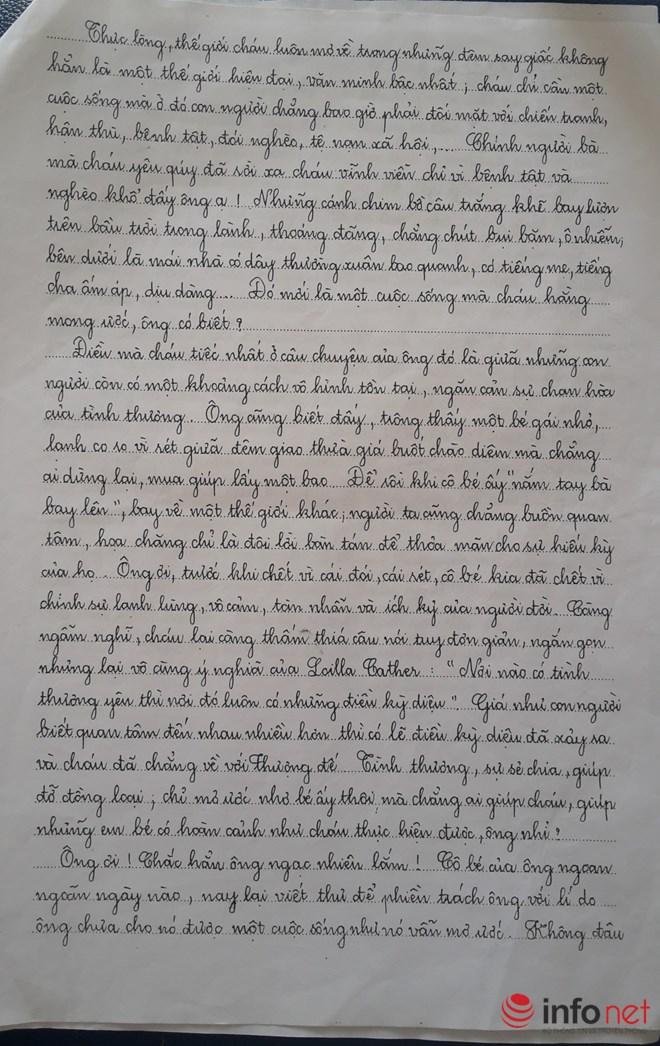 Thực lòng, thế giới cháu luôn mơ về trong những đêm say giấc không
hẳn là một thế giới hiện đại, văn minh bậc nhất; cháu chỉ cần một
cuộc sống mà ở đó con người chẳng bao giờ phải đối mặt với chiến tranh,
hận thù, bệnh tật, đói nghèo, tệ nạn xã hội,... Chính người bà
mà cháu yêu quý đã rời xa cháu vĩnh viễn chỉ vì bệnh tật và
nghèo khổ đấy ông ạ! Những cánh chim bồ câu trắng khẽ bay lượn
trên bầu trời trong lành, thoáng đãng, chẳng chút bụi bặm, ô nhiễm;
bên dưới là mái nhà có dây thường xuân bao quanh, có tiếng mẹ, tiếng
cha ấm áp, dịu dàng... Đó mới là một cuộc sống mà cháu hằng
mong ước, ông có biết?
Điều mà cháu tiếc nhất ở câu chuyện của ông đó là giữa những con
người còn có một khoảng cách vô hình tồn tại, ngăn cản sự chan hòa
của tình thương. Ông cũng biết đấy, trông thấy một bé gái nhỏ,
lạnh co ro vì rét giữa đêm giao thừa giá buốt chào diêm mà chẳng
ai dừng lại, mua giúp lấy một bao. Để rồi khi cô bé ấy "nắm tay bà
bay lên", bay về một thế giới khác; người ta cũng chẳng buồn quan
tâm, họa chăng chỉ là đôi lời bàn tán để thỏa mãn cho sự hiếu kỳ
của họ. Ông ơi, trước khi chết vì cái đói, cái rét, cô bé kia đã chết vì
chính sự lạnh lùng, vô cảm, tàn nhẫn và ích kỷ của người đời. Càng
ngẫm nghĩ, cháu lại càng thấm thía câu nói tuy đơn giản, ngắn gọn
nhưng lại vô cùng ý nghĩa của Loilla Cather: "Nơi nào có tình
thương yêu thì nơi đó luôn có những điều kỳ diệu". Giá như con người
biết quan tâm đến nhau nhiều hơn thì có lẽ điều kỳ diệu đã xảy ra
và cháu đã chẳng về với Thượng đế. Tình thương, sự sẻ chia, giúp
đỡ đồng loại; chỉ mơ ước nhỏ bé ấy thôi, mà chẳng ai giúp cháu, giúp
những em bé có hoàn cảnh như cháu thực hiện được, ông nhỉ?
Ông ơi! Chắc hẳn ông ngạc nhiên lắm! Cô bé của ông ngoan
ngoãn ngày nào, nay lại viết thư để phiền trách ông với lí do
ông chưa cho nó được một cuộc sống như nó vẫn mơ ước. Không đâu
infonet